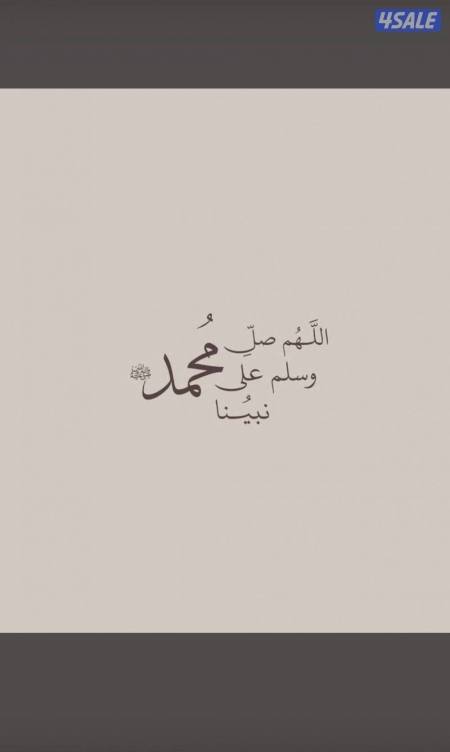 4SALE
اللَّهُم صلِّ
وسلم على
نبيُنا
مُحمد ﷺ